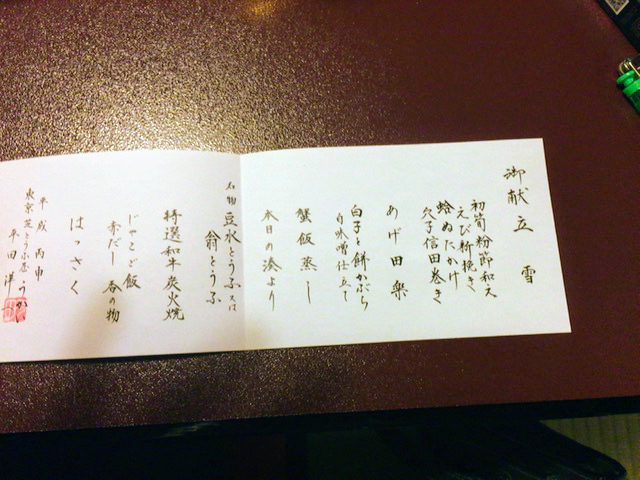 御献立　雪
初筍粉節和え
えび新挽き
蛤ぬたかけ
穴子信田巻き
あげ田楽
白子と餅かぶら
白味噌仕立て
蟹飯蒸し
本日の湊より
名物 豆水とうふ 又は
翁とうふ
特選和牛炭火焼
じゃこご飯
赤だし　香の物
はっさく
平成 丙申
東京芝とうふ屋うかい
平田 洋